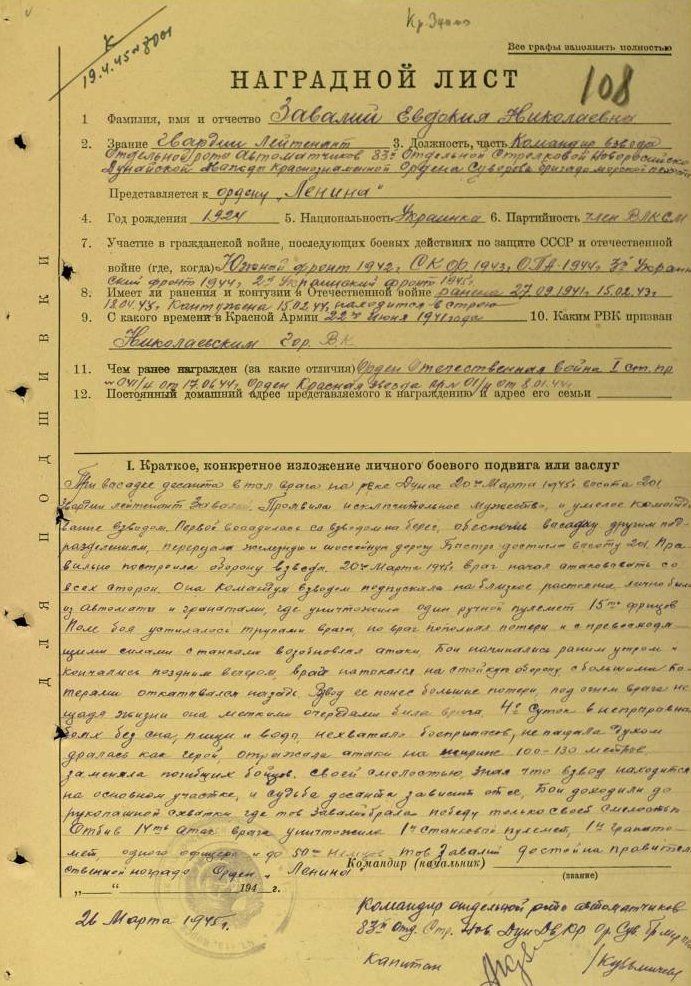 Кр Знамя
К
19.4.45
Все графы заполнять полностью
НАГРАДНОЙ ЛИСТ
108
1 Фамилия, имя и отчество Завалий Евдокия Николаевна
2. Звание гвардии Лейтенант 3. Должность, часть Командир взвода
отдельной роты Автоматчиков 83й Отдельной Стрелковой Новороссийско
Дунайской дважды Краснознаменной Ордена Суворова бригады морской пехоты
Представляется к ордену „Ленина"
4. Год рождения 1924 5. Национальность Украинка 6. Партийность член ВЛКСМ
7. Участие в гражданской войне, последующих боевых действиях по защите СССР и отечественной
войне (где, когда) Южный фронт 1942г. СКФ 1943г. ОПА 1944г. 3й Украин
ский фронт 1944г. 2й Украинский фронт 1945г.
8. Имеет ли ранения и контузии в Отечественной войне ранена 27.09.1941г. 15.02.43г.
Контужена 15.02.44г. находится в строю
9. С какого времени в Красной Армии 22го июня 1941 года 10. Каким РВК призван
Николаевским гор. ВК
11. Чем ранее награжден (за какие отличия) Орден Отечественная война I ст. пр
№ 041/н от 17.06.44г. Орден Красная звезда пр № 01/н от 8.01.44г.
12. Постоянный домашний адрес представляемого к награждению и адрес его семьи
ДЛЯ ПОДШИВКИ
I. Краткое, конкретное изложение личного боевого подвига или заслуг
При васадке десанта в тал врага на реке Дунае 20го Марта 1945г. высота 201
Гвардии лейтенант Завалий. Проявила исключительное мужество, и умелое командо
вание взводом. Первой восадилась со взводом на берег, обеспечив васадку другим под
разделениям, перерезала железную и шоссейную дорогу быстро достигла высоту 201. Пра
вильно построила оборону взвода. 20го Марта 1945г. враг начал атаковать со
всех сторон. Она командуя взводом подпускала на близкое растояние лично била
из автомата и гранатами, где уничтожила один ручной пулемет 15ть фрицов
Поле боя устилалось трупами врага, но враг пополнял потери и с превосходя
щими силами с танками возобновлял атаки. Бои начинались раним утром и
кончались поздним вечером, враг натокался на стойкую оборону с большими по
терами откатавался назадь. Взвод ее понес большие потери, под огнем врага не
щадя жизни она меткими очередами била врага. 4е Суток в непрерывных
боях без сна, пищи и вода, нехватало боеприпасов, не падала духом
дралась как герой, отражала атаки на ширине 100-130 метров
заменяла погибших бойцов. своей смелостью зная что взвод находится
на основном участке, и судьба десанта зависит от ее, Бои доходили до
рукопашной схватки, где тов Завалий брала победу только своей смелостью
Отбив 14ть атак врага уничтожила 1н станковый пулемет, 1н гранато-
мет, одного офицера и до 50ти немцев. тов Завалий достойна правител
ственной награды Орден „Ленина"
Командир (начальник)
(звание)
„___" ______ 194_ г.
26 Марта 1945г.
Командир отдельной роты автоматчиков
83й Отд. Стр. Нов. Дун Дв. Кр Ор. Сув. Бр.
капитан /Кузьмичев